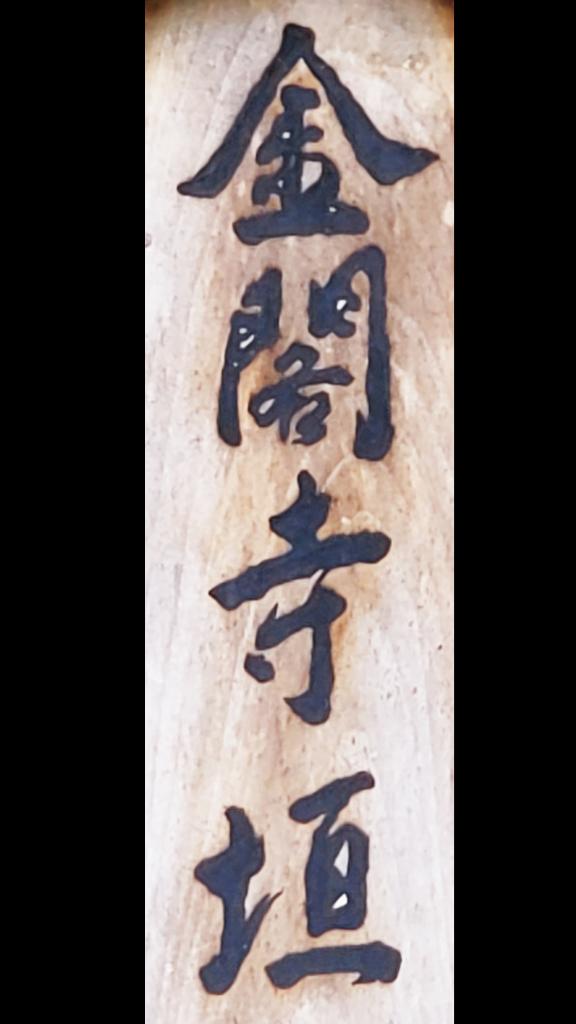 金閣寺垣